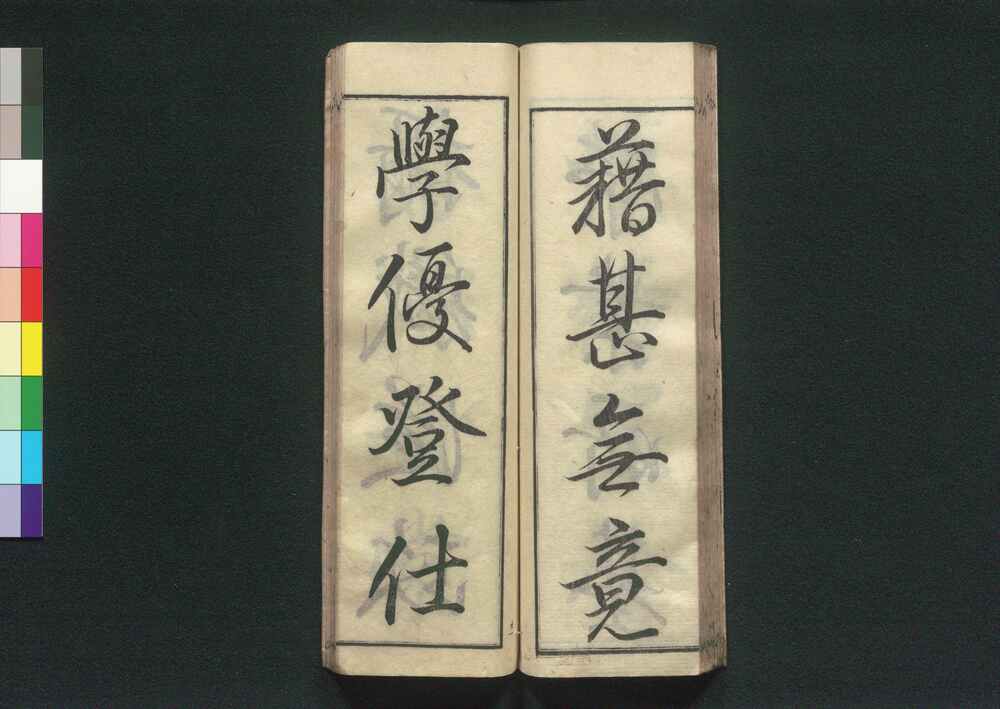 藉甚無竟
學優登仕